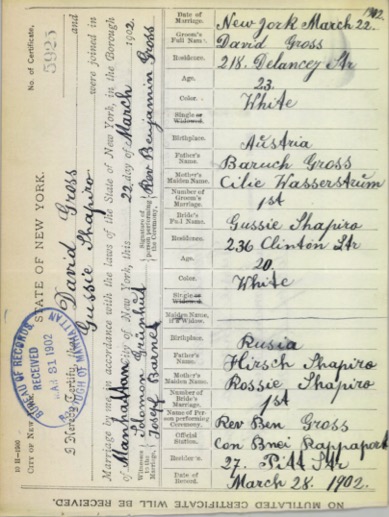 No. of Certificate,
5925
STATE OF NEW YORK.
CITY OF NEW
I Hereby Certify, that
David Gross
and
Gussie Shapiro
were joined in
Marriage by me in accordance with the laws of the State of New York, in the Borough
of Manhattan City of New York, this 22 day of March 1902.
Witnesses to the Marriage,
Solomon Grünhut
Josef Barnet
Signature of person performing the Ceremony,
Rev Benjamin Gross
BUREAU OF RECORDS.
RECEIVED
31 1902
BOROUGH OF MANHATTAN
Date of Marriage.
New York March 22. 1902.
Groom's Full Name.
David Gross
Residence.
218. Delancey Str
Age.
23.
Color.
White
Single or Widowed.
Birthplace.
Austria
Father's Name.
Baruch Gross
Mother's Maiden Name.
Cilie Wasserstrum
Number of Groom's Marriage.
1st
Bride's Full Name.
Gussie Shapiro
Residence.
236 Clinton Str
Age.
20
Color.
White
Single or Widowed.
Maiden Name, if a Widow.
Birthplace.
Rusia
Father's Name.
Hirsch Shapiro
Mother's Maiden Name.
Rossie Shapiro
Number of Bride's Marriage.
1st
Name of Person performing Ceremony.
Rev Ben Gross
Official Station.
Con Bnei Rappaport
Residence.
27. Pitt Str
Date of Record.
March 28. 1902.
NO MUTILATED CERTIFICATE WILL BE RECEIVED.